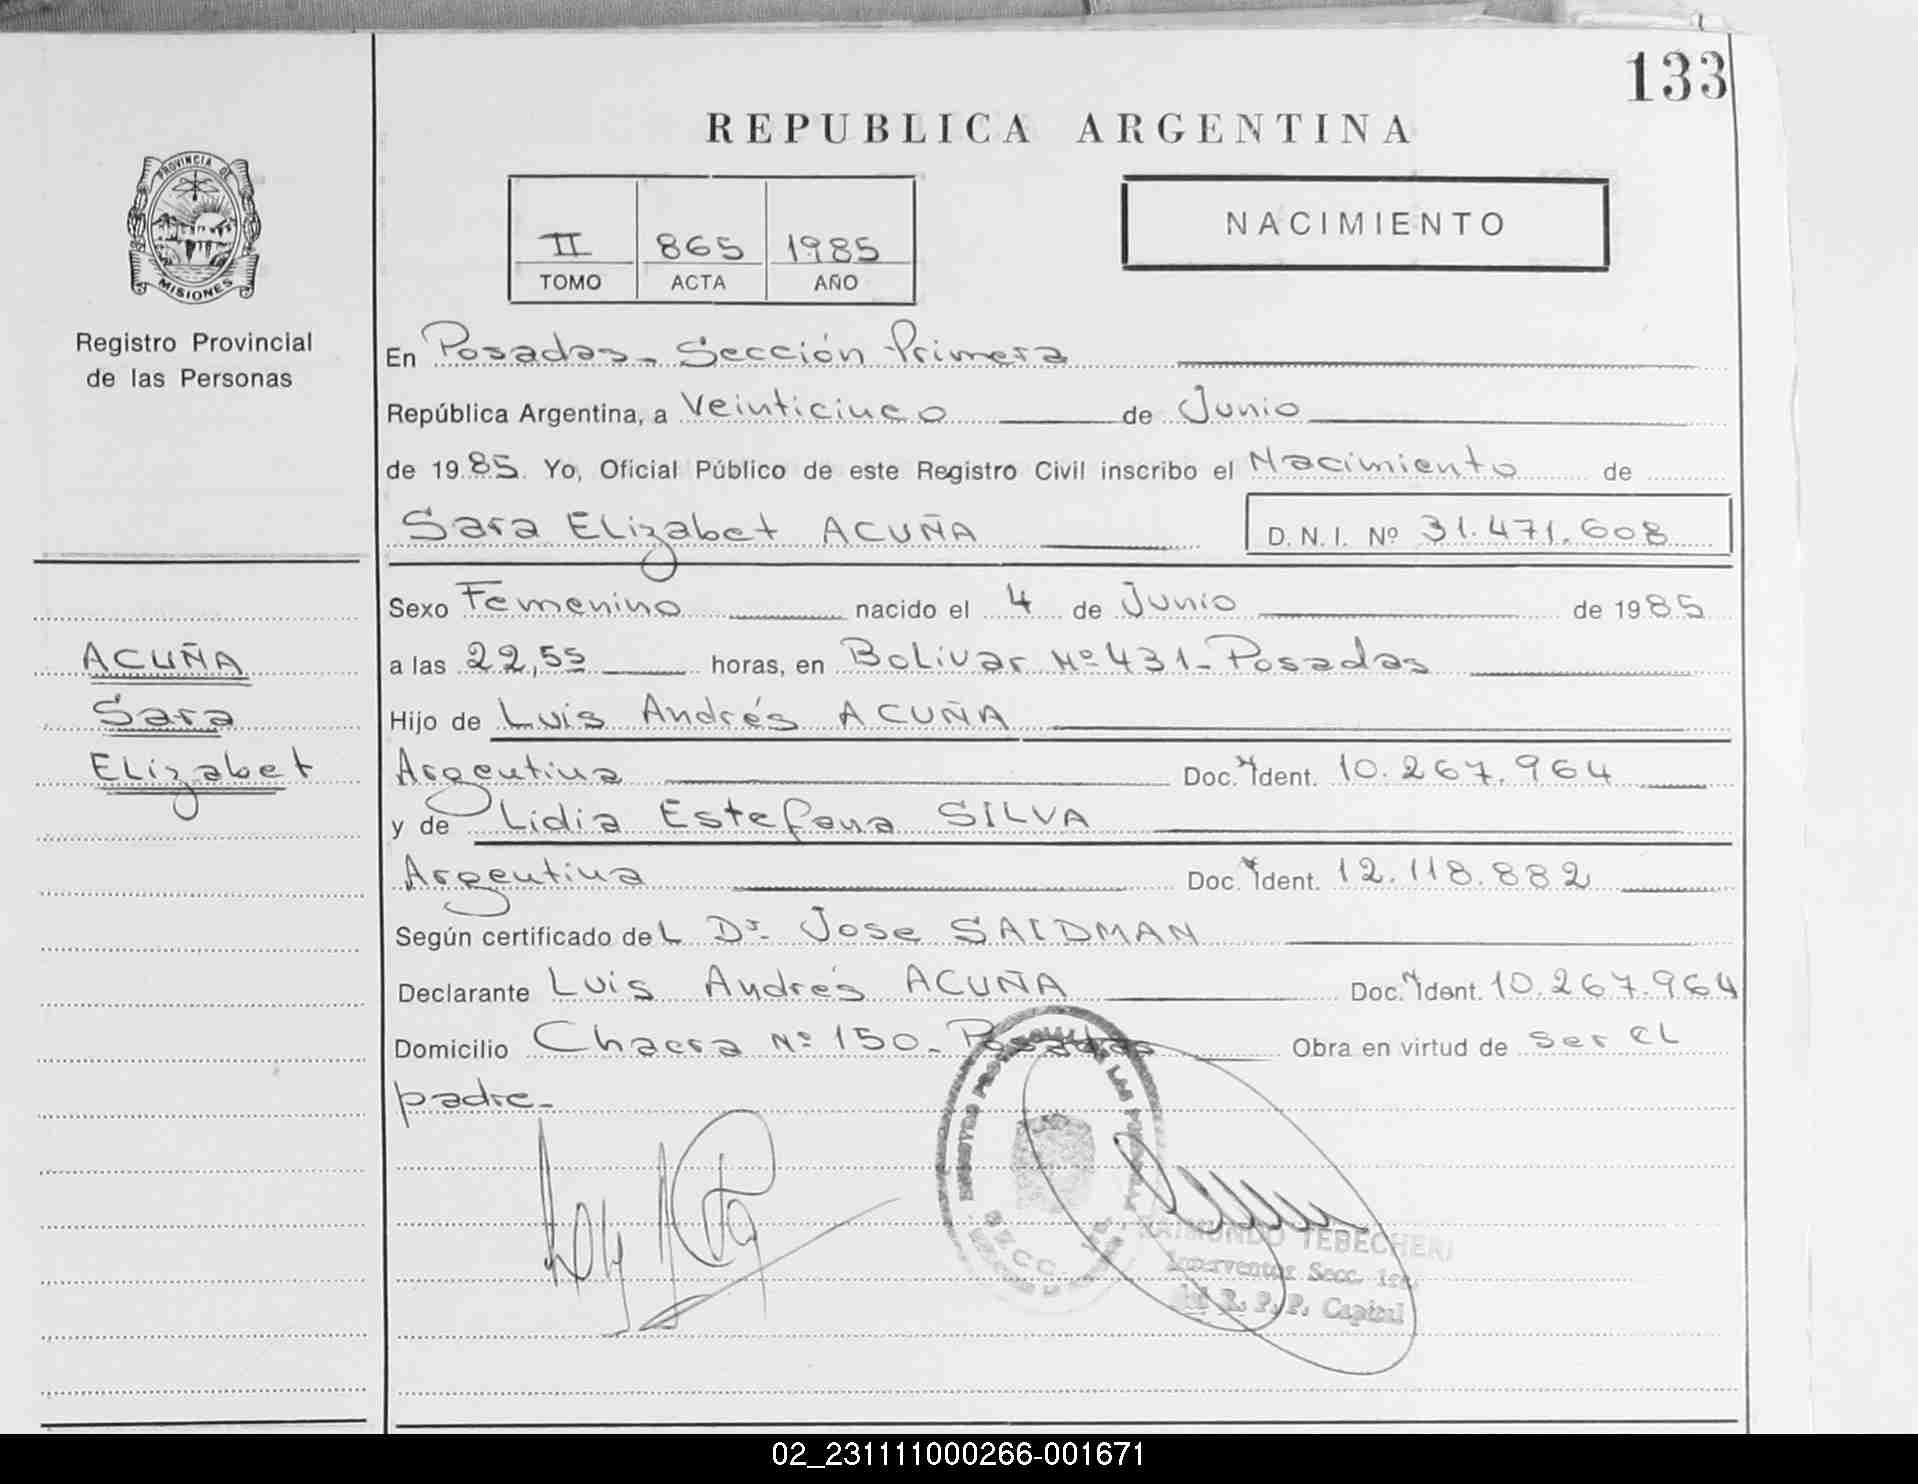 133
REPUBLICA ARGENTINA
PROVINCIA DE
MISIONES
Registro Provincial
de las Personas
II 865 1985
TOMO ACTA AÑO
NACIMIENTO
En Posadas - Sección Primera
República Argentina, a Veinticinco de Junio
de 1985. Yo, Oficial Público de este Registro Civil inscribo el Nacimiento de
Sara Elizabet ACUÑA D. N. I. Nº 31.471.608
Sexo Femenino nacido el 4 de Junio de 1985
ACUÑA
Sara
Elizabet
a las 22,55 horas, en Bolivar Nº 431 - Posadas
Hijo de Luis Andrés ACUÑA
Argentina Doc. Ident. 10.267.964
y de Lidia Estefana SILVA
Argentina Doc. Ident. 12.118.882
Según certificado del Dr. Jose SAIDMAN
Declarante Luis Andrés ACUÑA Doc. Ident. 10.267.964
Domicilio Chacra Nº 150 - Posadas Obra en virtud de ser el
padre -
RAIMUNDO TEBECHERI
Interventor Secc. 1ra.
del R. P. P. Capital
02_231111000266-001671